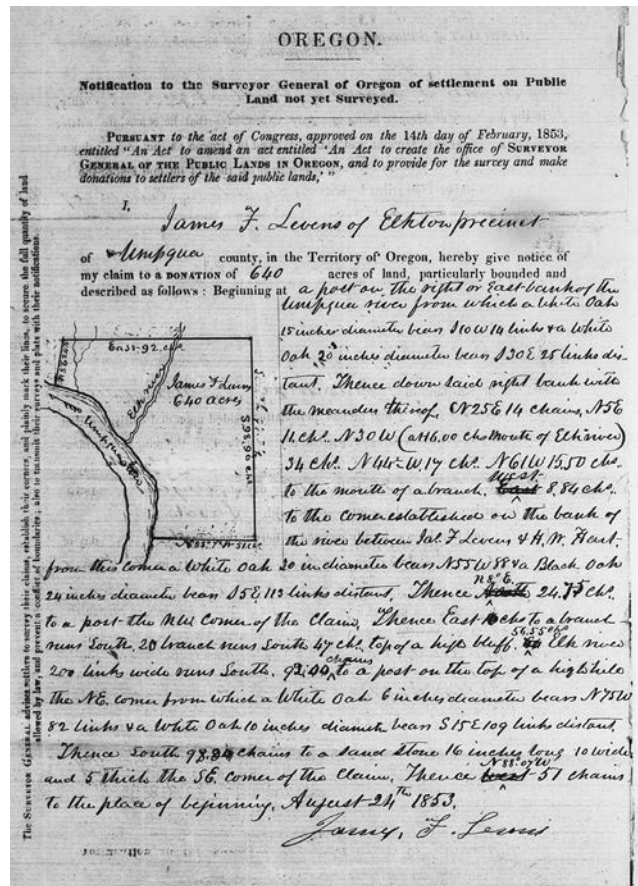 OREGON.
Notification to the Surveyor General of Oregon of settlement on Public
Land not yet Surveyed.
PURSUANT to the act of Congress, approved on the 14th day of February, 1853,
entitled "An Act to amend an act entitled 'An Act to create the office of SURVEYOR
GENERAL OF THE PUBLIC LANDS IN OREGON, and to provide for the survey and make
donations to settlers of the said public lands,'"
I,
James F. Levens of Elkton precinct
of Umpqua county, in the Territory of Oregon, hereby give notice of
my claim to a DONATION of 640 acres of land, particularly bounded and
described as follows: Beginning at a post on the right or East bank of the
Umpqua river from which a White Oak
15 inches diameter bears S10W 14 links & a White
Oak 20 inches diameter bears S30E 25 links dis-
tant. Thence down said right bank with
the meanders thereof. N25E 14 chains, N5E
14 chs. N30W (at 16.00 chs mouth of Elk river)
34 chs. N44 W. 17 chs. N61W 15.50 chs.
to the mouth of a branch. West 8.84 chs.
to the corner established on the bank of
the river between Jas. F Levens & H. W. Hart-
from this corner a White Oak 20 in diameter bears N55W 88 & a Black Oak
24 inches diameter bears S5E 113 links distant. Thence N8°E. 24.75 chs.
to a post the NW corner of the Claim. Thence East chs to a branch
runs South. 20 branch runs South 47 chs. top of a high bluff. 56.55 chs Elk river
200 links wide runs South. chains to a post on the top of a high hill
the NE. corner from which a White Oak 6 inches diameter bears N75W
82 links & a White Oak 10 inches diameter bears S15E 109 links distant.
Thence South chains to a sand stone 16 inches long 10 wide
and 5 thick the SE corner of the Claim. Thence N88°07W 51 chains
to the place of beginning. August 24th 1853.
James. F. Levens
East 92 chs
Elk river
James F Levens
640 acres
Umpqua River
The SURVEYOR GENERAL advises settlers to survey their claims, establish their corners, and plainly mark their lines, to secure the full quantity of land
allowed by law, and prevent a conflict of boundaries; also to transmit their surveys and plats with their notifications.